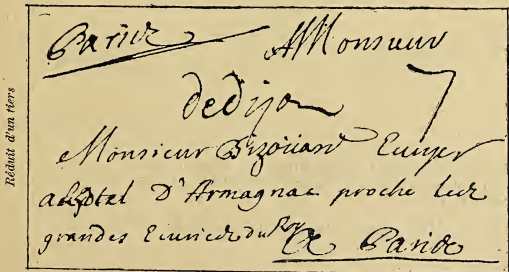 Réduit d'un tiers
Paris AMonsieur
de dijon 7
Monsieur Bizoüard Ecuyer
alhotel D'Armagnac proche les
grandes Ecuries du Roy
A Paris